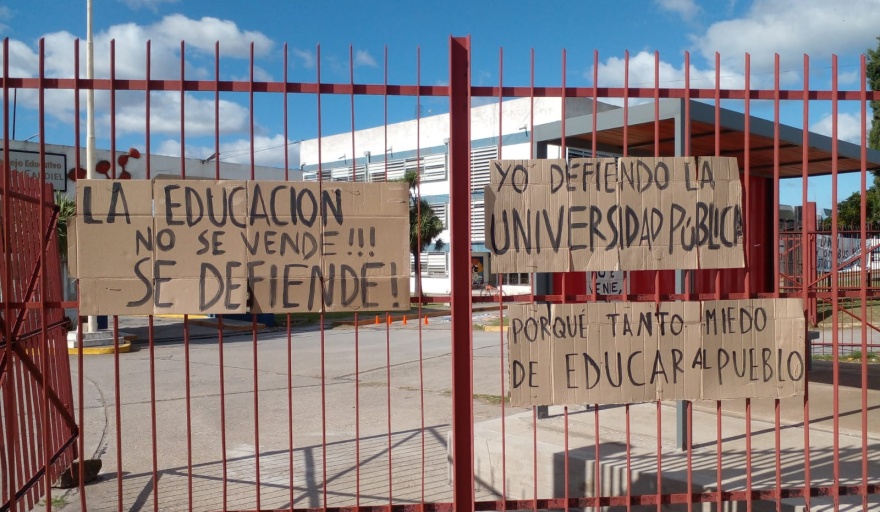 LA EDUCACION
NO SE VENDE!!!
SE DEFIENDE!
YO DEFIENDO LA
UNIVERSIDAD PÚBLICA
PORQUÉ TANTO MIEDO
DE EDUCAR AL PUEBLO